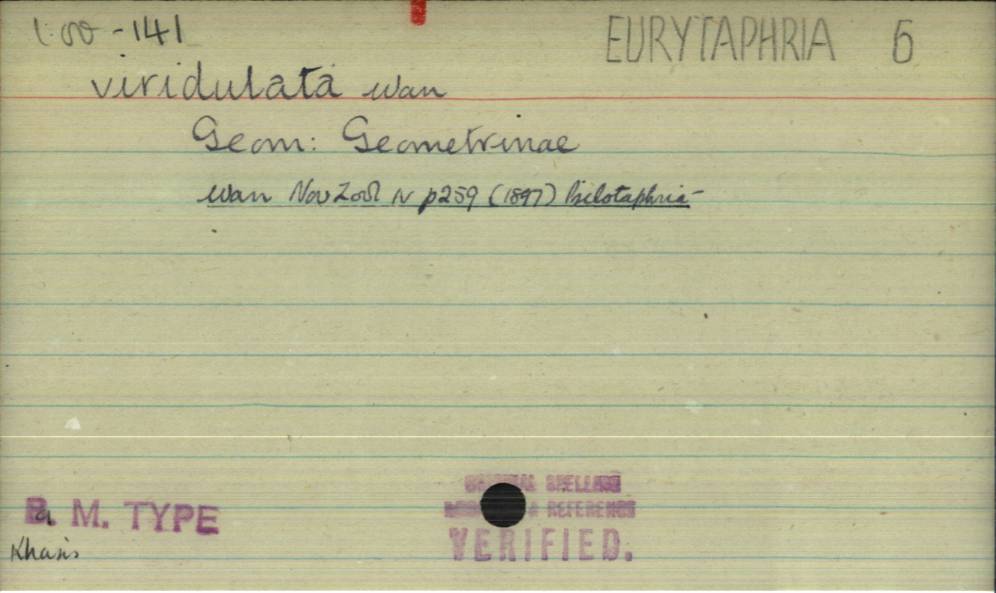 -141 EURYTAPHRIA 6
viridulata Warr
Geom: Geometrinae
Warr Nov Zool IV p259 (1897) Psilotaphria
B. M. TYPE
Khasis
SPELLING
& REFERENCE
VERIFIED.